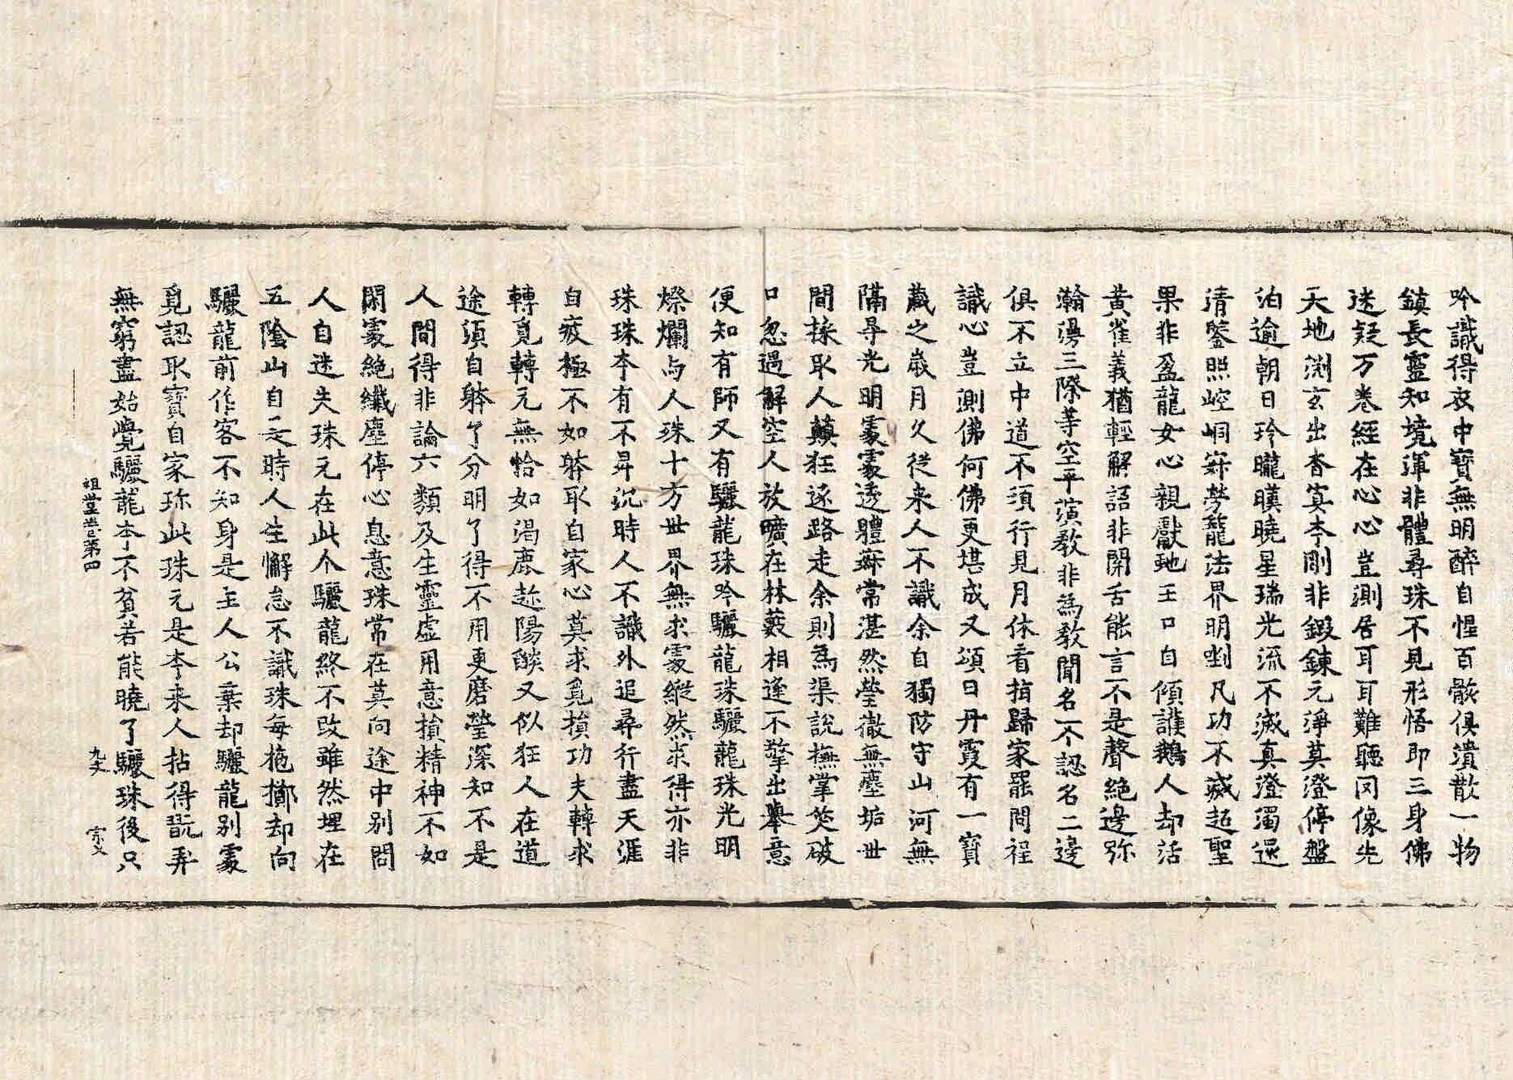 吟識得衣中寶無明醉自惺百骸俱潰散一物
鎮長靈知境渾非體尋珠不見形悟即三身佛
迷疑万卷經在心心豈測居耳耳難聽罔像先
天地渊玄出杳冥夲剛非鍛鍊元淨莫澄停盤
泊逾朝日玲曨暎曉星瑞光流不滅真澄濁還
清鑒照崆峒寂勞籠法界明剉凡功不滅超聖
果非盈龍女心親獻虵王口自傾護鵝人却活
黃雀義猶輕解語非開舌能言不是聲絶邊弥
瀚漫三際等空平演教非為教聞名不認名二邊
俱不立中道不須行見月休看指歸家罷問程
識心豈測佛何佛更堪成又頌曰丹霞有一寶
藏之歲月久従来人不識余自獨防守山河無
隔㝵光明䖏䖏透體寂常湛然瑩徹無塵垢世
間採取人顛狂逐路走余則為渠說撫掌笑破
口忽遇解空人放曠在林薮相逢不擎出舉意
便知有師又有驪龍珠吟驪龍珠驪龍珠光明
燦爛与人珠十方世界無求䖏縱然求得亦非
珠珠夲有不昇沉時人不識外追尋行盡天涯
自疲極不如躰取自家心莫求覓損功夫轉求
轉覓轉元無恰如渴鹿趂陽燄又似狂人在道
途須自躰了分明了得不用更磨瑩深知不是
人間得非論六類及生靈虚用意損精神不如
閑䖏絶纖塵停心息意珠常在莫向途中別問
人自迷失珠元在此个驪龍終不改雖然埋在
五隂山自是時人生懈怠不識珠每抛擲却向
驪龍前作客不知身是主人公棄却驪龍別䖏
覓認取寶自家珎此珠元是夲来人拈得翫弄
無窮盡始覺驪龍夲不貧若能曉了驪珠後只
祖堂卷第四 九丈 宗文